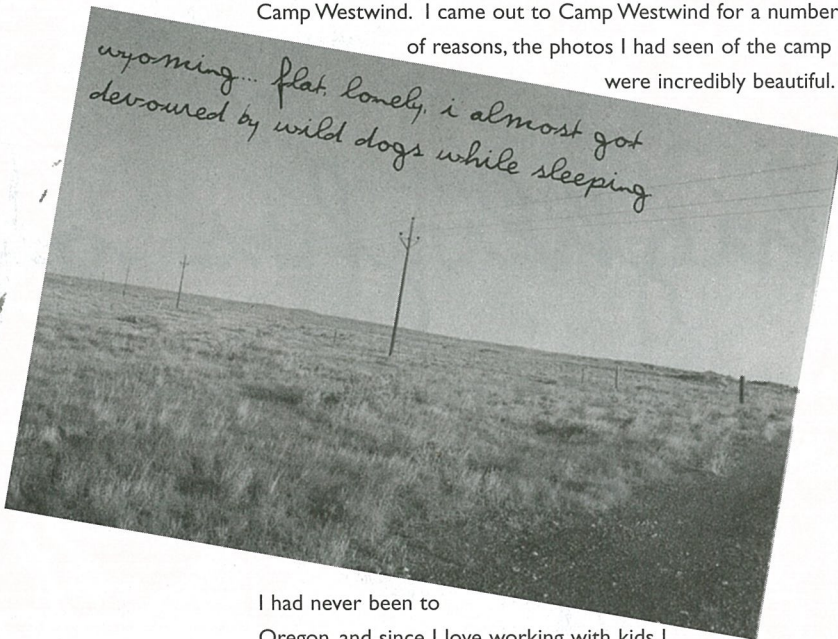 Camp Westwind. I came out to Camp Westwind for a number
of reasons, the photos I had seen of the camp
were incredibly beautiful.
wyoming... flat, lonely, i almost got
devoured by wild dogs while sleeping
I had never been to
Oregon, and since I love working with kids I